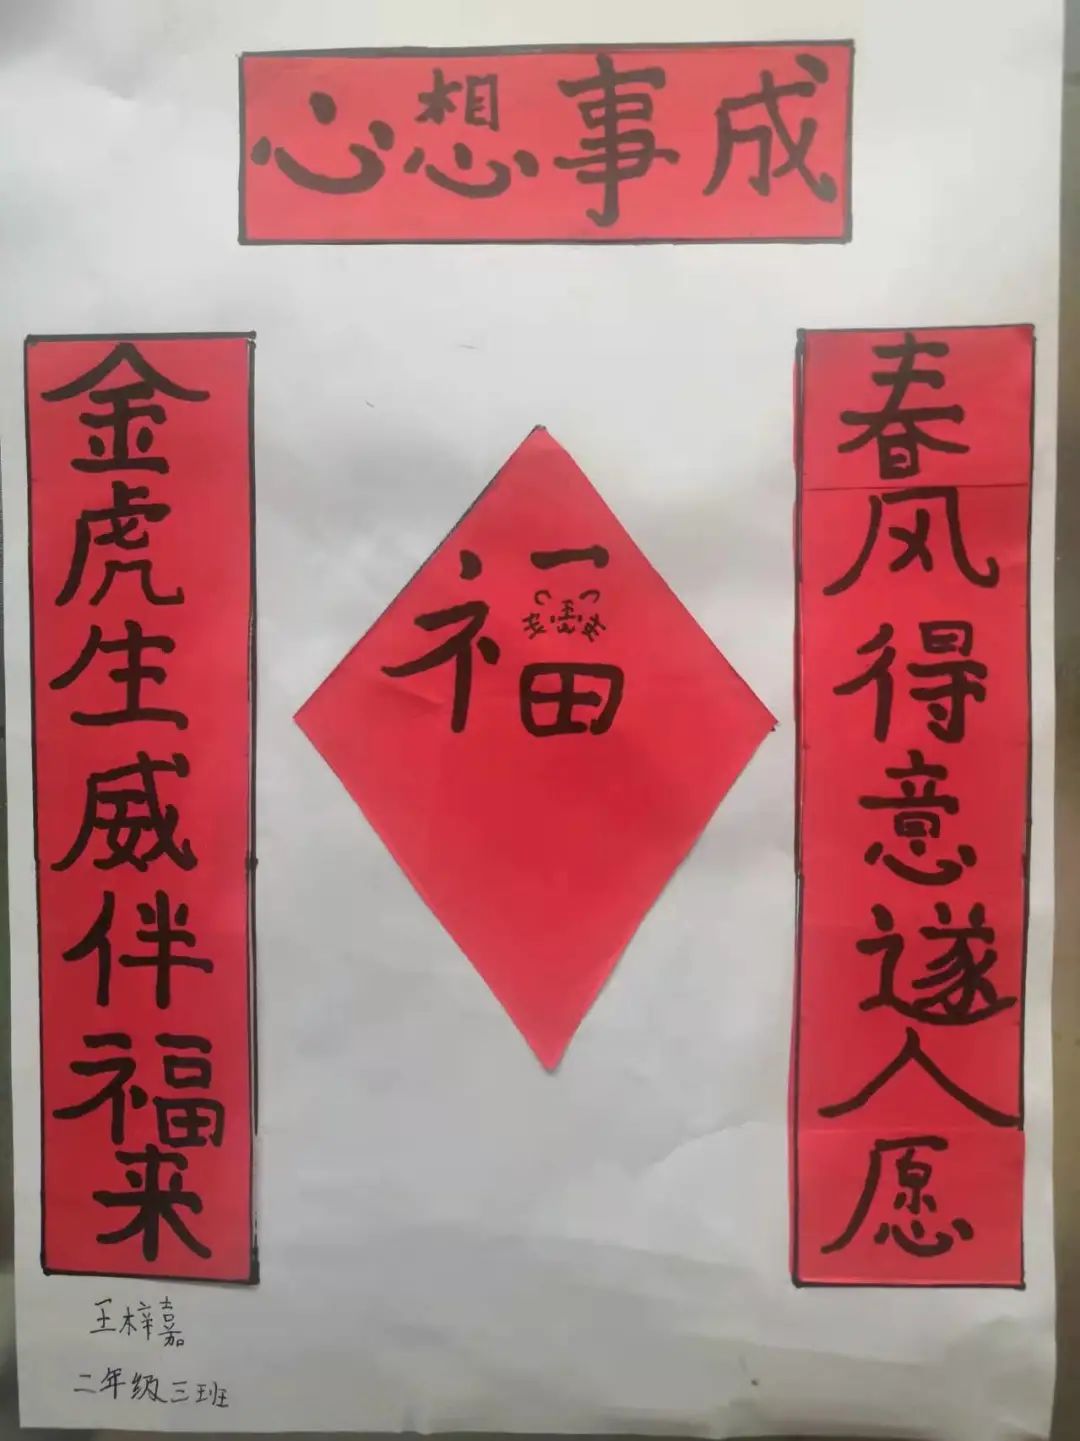 心想事成
春风得意遂人愿
金虎生威伴福来
福
王梓嘉
二年级三班